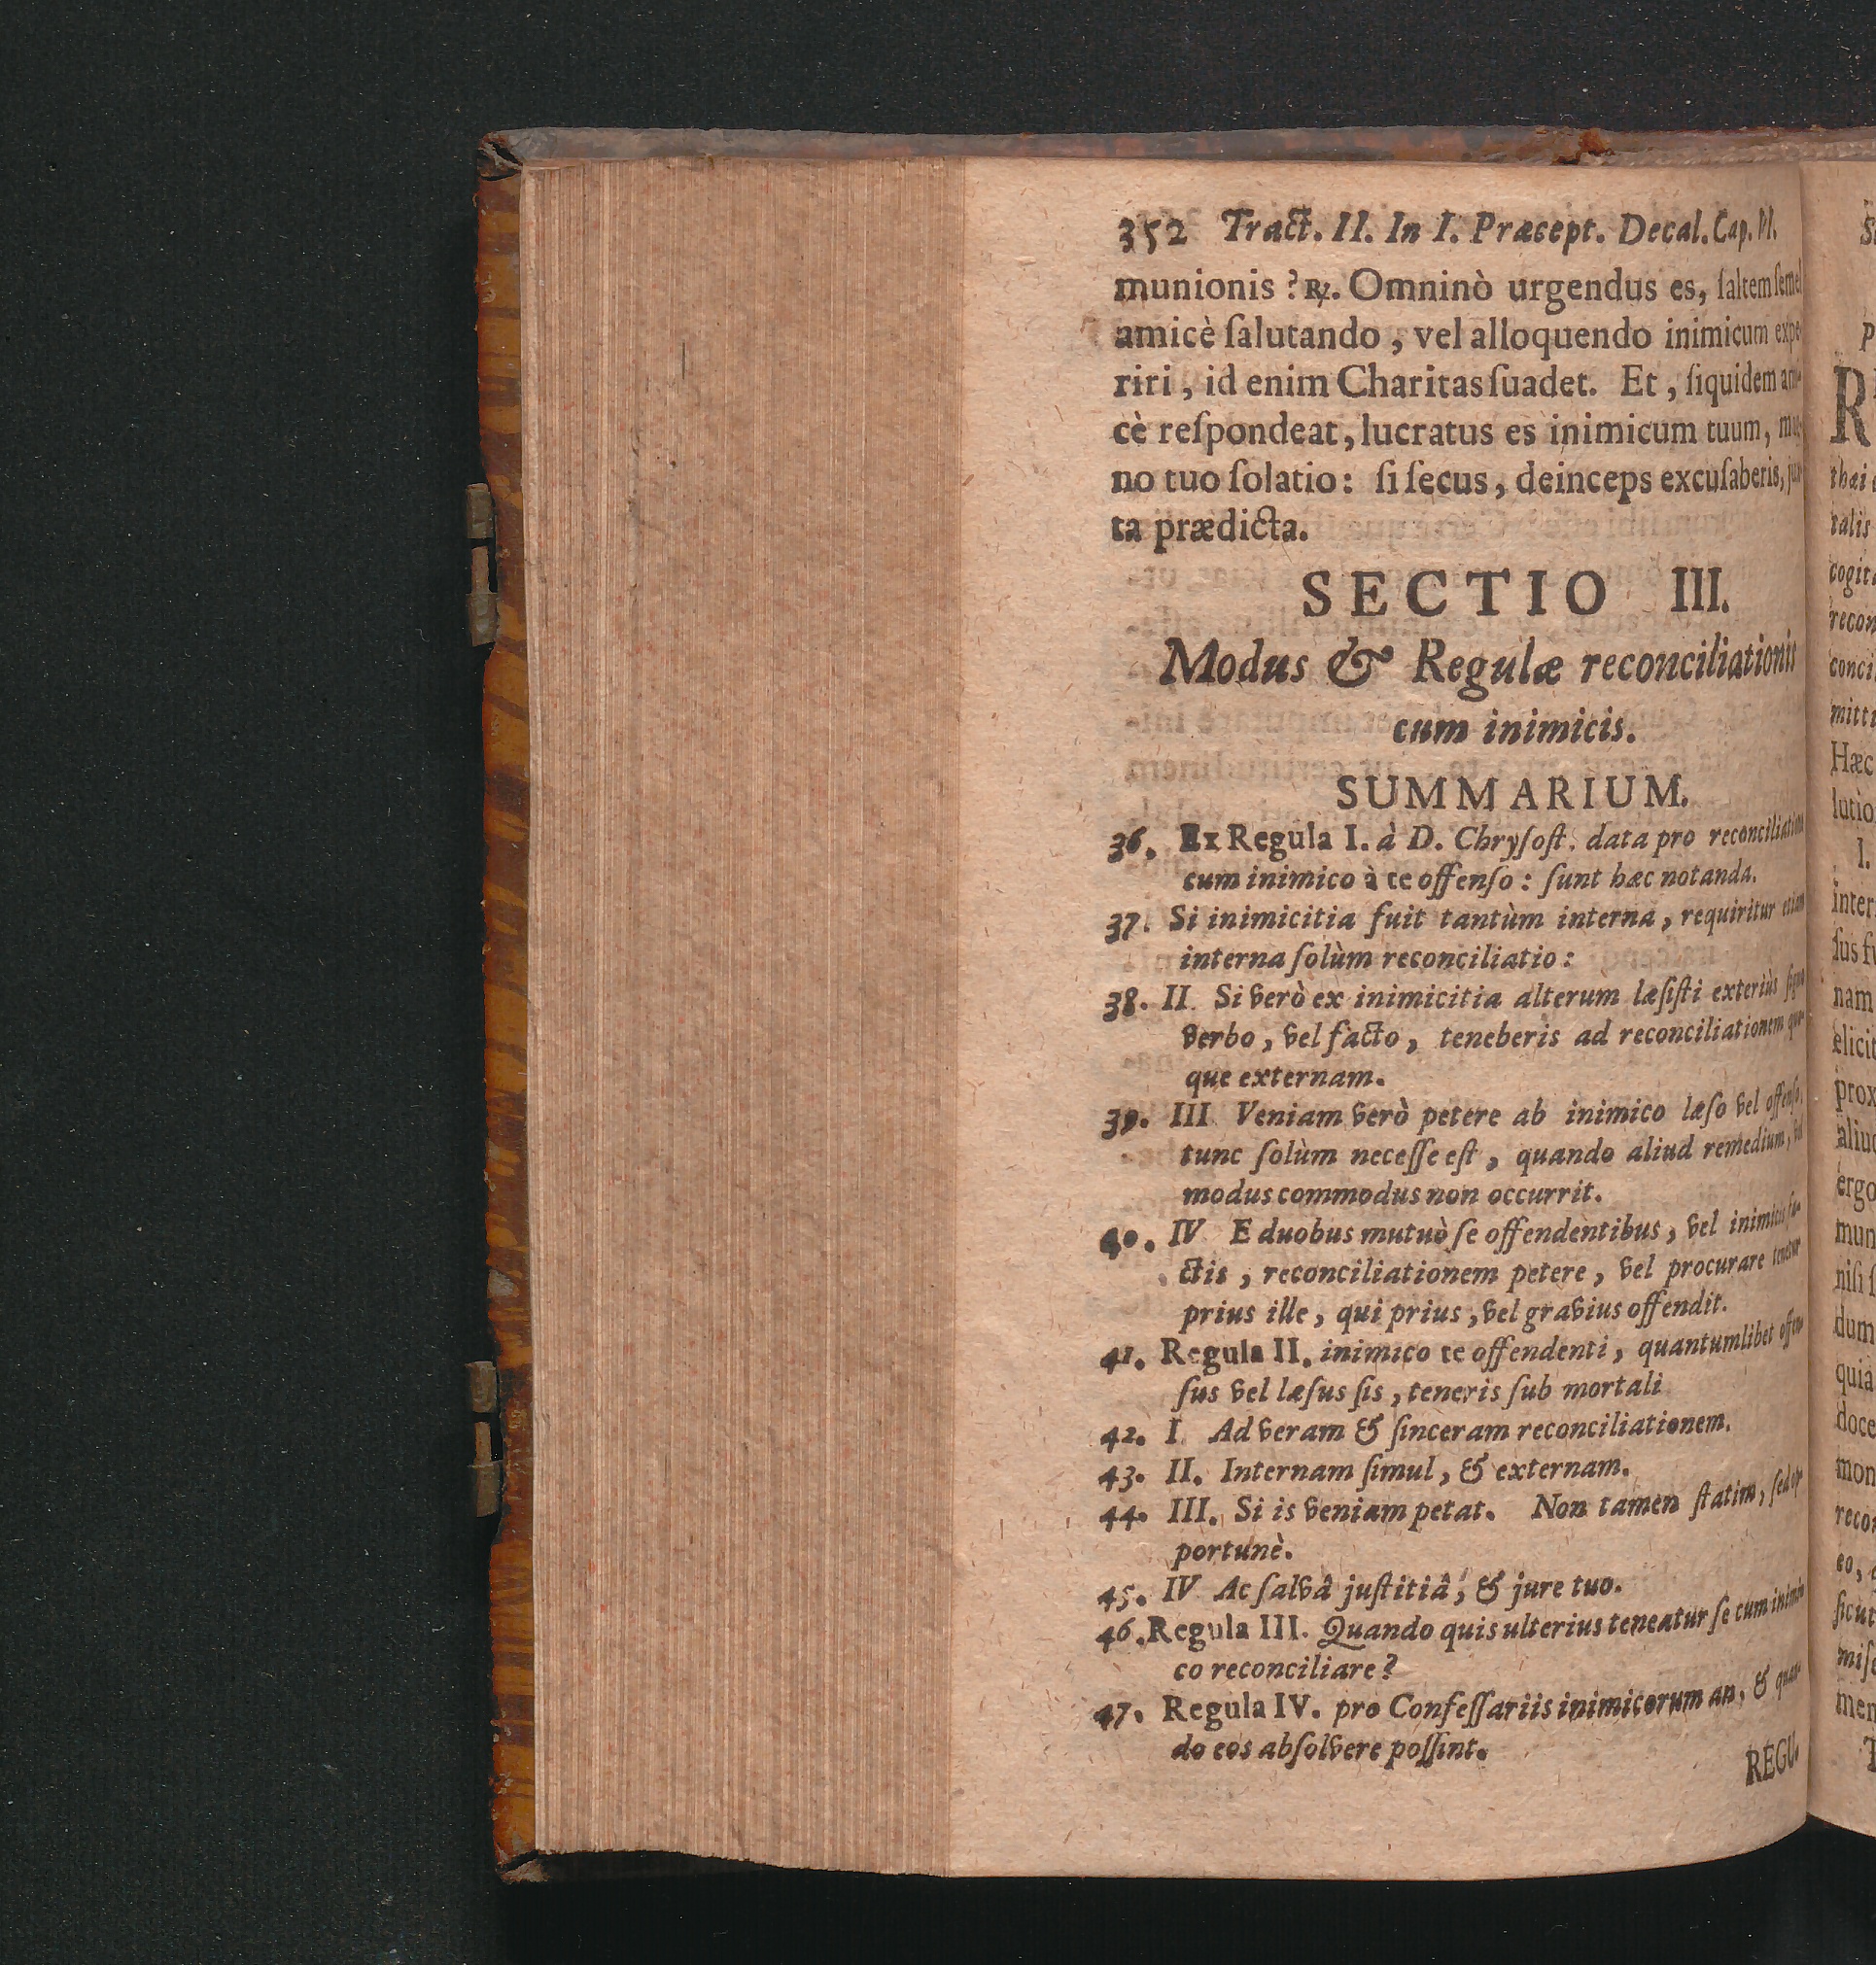 352 Tract. II. In I. Præcept. Decal. Cap. VI.
munionis ? ℟. Omninò urgendus es, ſaltem ſemel
amicè ſalutando , vel alloquendo inimicum expe-
riri , id enim Charitas ſuadet. Et , ſiquidem ami-
cè reſpondeat, lucratus es inimicum tuum,
no tuo ſolatio: ſi ſecus , deinceps excuſaberis, jux-
ta prædicta.
SECTIO III.
Modus & Regulæ reconciliationis
cum inimicis.
SUMMARIUM.
36. Ex Regula I. à D. Chryſoſt. data pro reconciliatione
cum inimico à te offenſo : ſunt hæc notanda.
37. Si inimicitia fuit tantùm interna, requiritur etiam
interna ſolùm reconciliatio :
38. II. Si verò ex inimicitia alterum læſiſti exteriùs ſigno
verbo, vel facto, teneberis ad reconciliationem quo-
que externam.
39. III Veniam verò petere ab inimico læſo vel offenſo,
tunc ſolùm neceſſe eſt, quando aliud remedium, vel
modus commodus non occurrit.
40. IV E duobus mutuò ſe offendentibus, vel inimicis fa-
ctis, reconciliationem petere, vel procurare tenetur
prius ille, qui prius, vel gravius offendit.
41. Regula II. inimico te offendenti, quantumlibet offen
ſus vel læſus ſis, teneris ſub mortali
42. I. Ad veram & ſinceram reconciliationem.
43. II. Internam ſimul, & externam.
44. III. Si is veniam petat. Non tamen ſtatim, ſed op-
portunè.
45. IV Ac ſalvâ juſtitiâ, & jure tuo.
46. Regula III. Quando quis ulterius teneatur ſe cum inimi-
co reconciliare?
47. Regula IV. pro Confeſſariis inimicorum an, & quan-
do eos abſolvere poſſint.
REGU-